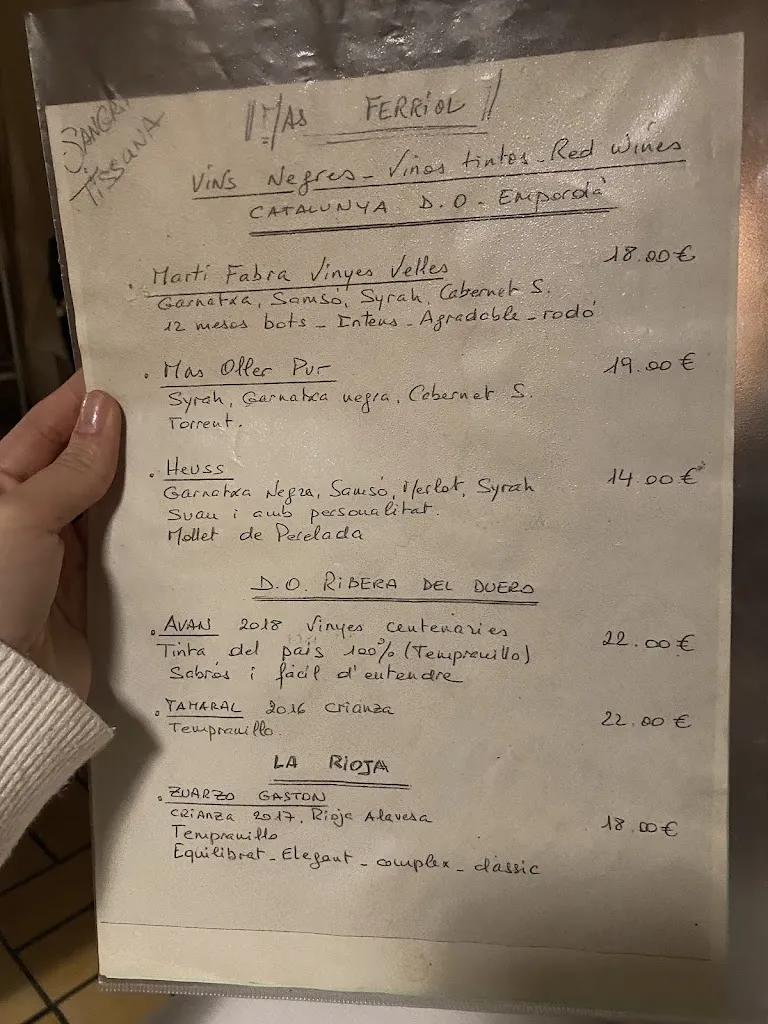 SANGRIA
TISSANA
MAS FERRIOL
Vins Negres - Vinos tintos - Red wines
CATALUNYA D.O. Empordà
. Marti Fabra Vinyes Velles 18.00 €
Garnatxa, Samsó, Syrah, Cabernet S.
12 mesos bots - Intens - Agradable - rodó
. Mas Oller Pur 19.00 €
Syrah, Garnatxa negra, Cabernet S.
Torrent.
. Heuss 14.00 €
Garnatxa Negra, Samsó, Merlot, Syrah
Suau i amb personalitat.
Mollet de Perelada
D.O. RIBERA DEL DUERO
. AVAN 2018 Vinyes centenaries 22.00 €
Tinta del pais 100% (Tempranillo)
Sabrós i fàcil d'entendre
. TAMARAL 2016 crianza 22.00 €
Tempranillo.
LA RIOJA
. ZUARZO GASTON
CRIANZA 2017, Rioja Alavesa 18.00 €
Tempranillo
Equilibrat - Elegant - complex - clàssic